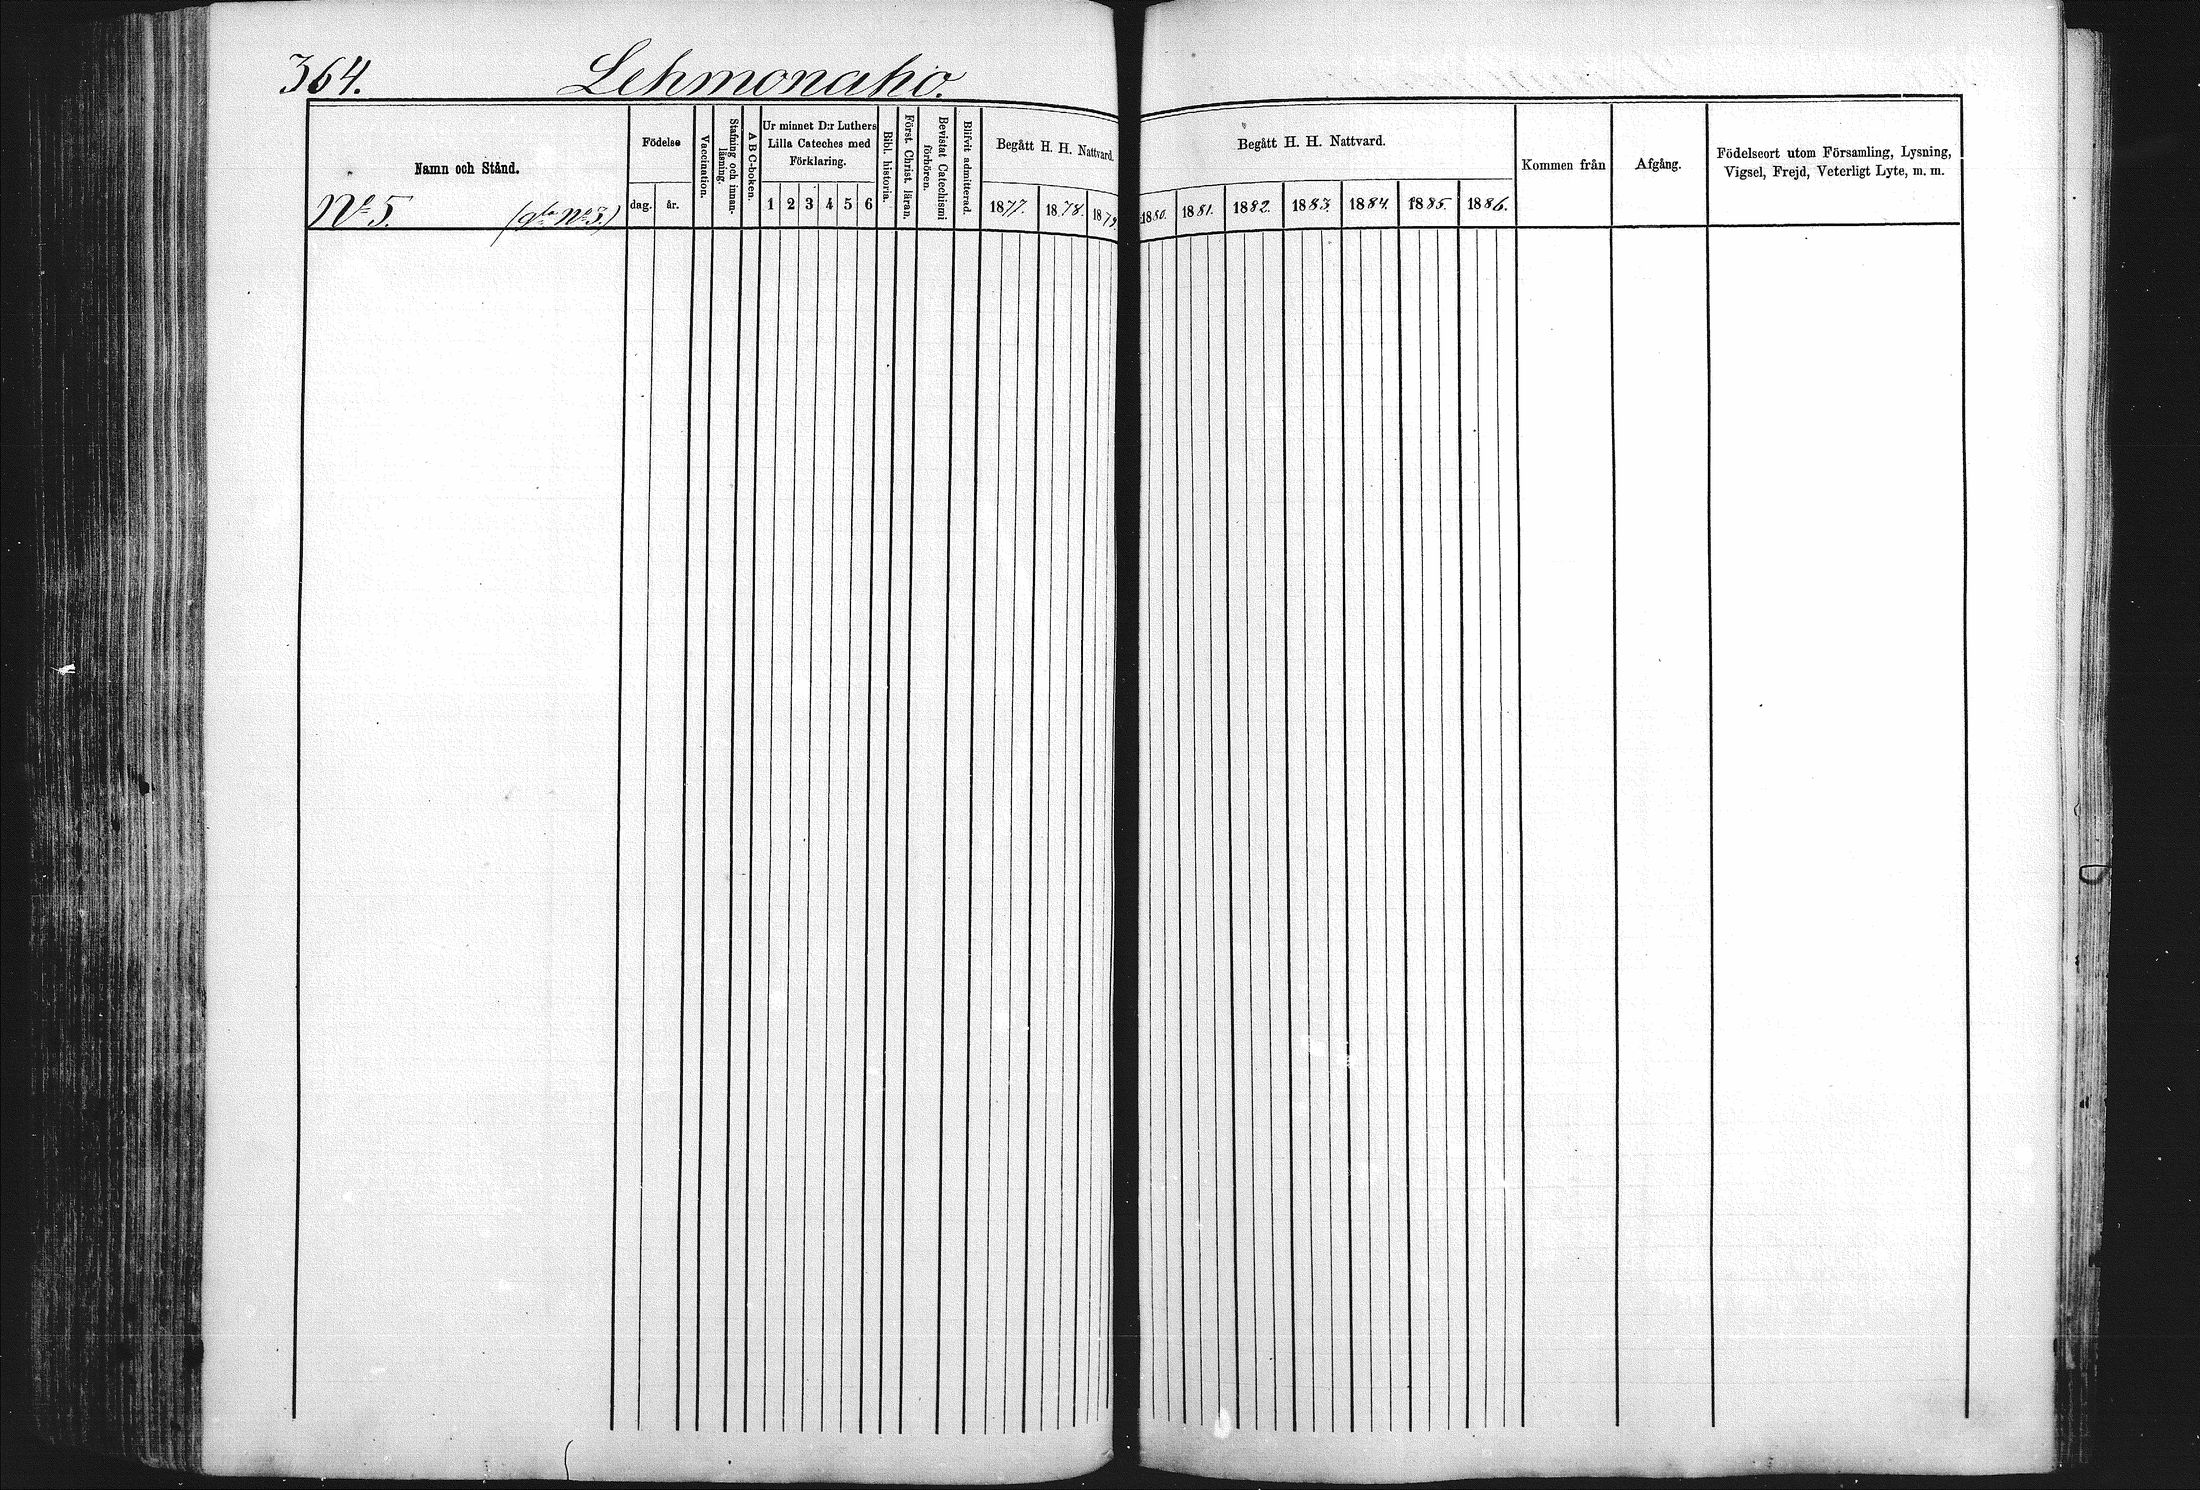 364. Lehmonaho.
Namn och Stånd.
N:o 5. (gla N:o 3.)
Födelse
dag. år.
Vaccination.
Stafning och innan-
läsning.
ABC-boken.
Ur minnet D:r Luthers
Lilla Cateches med
Förklaring.
1 2 3 4 5 6
Bibl. historia.
Först. Christ. läran.
Bevistat Catechismi
förhören.
Blifvit admitterad.
Begått H. H. Nattvard.
1877. 1878. 1879.
Begått H. H. Nattvard.
1880. 1881. 1882. 1883. 1884. 1885. 1886.
Kommen från
Afgång.
Födelseort utom Församling, Lysning,
Vigsel, Frejd, Veterligt Lyte, m. m.